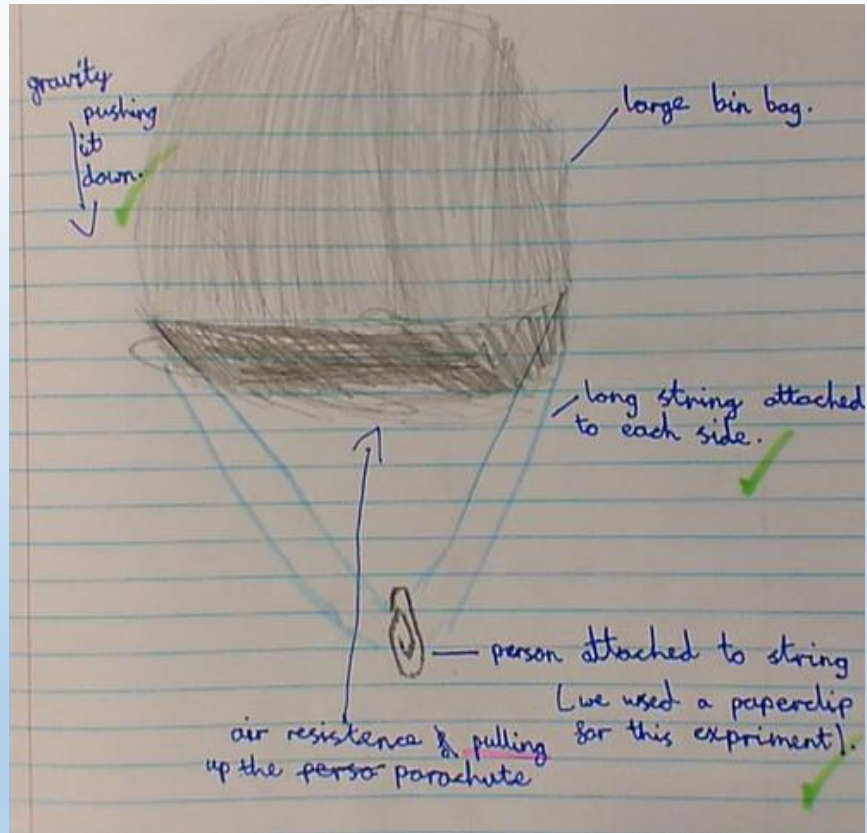 gravity
pushing
it
down.
large bin bag.
long string attached
to each side.
person attached to string
(we used a paperclip
for this expriment).
air resistence & pulling
up the perso parachute